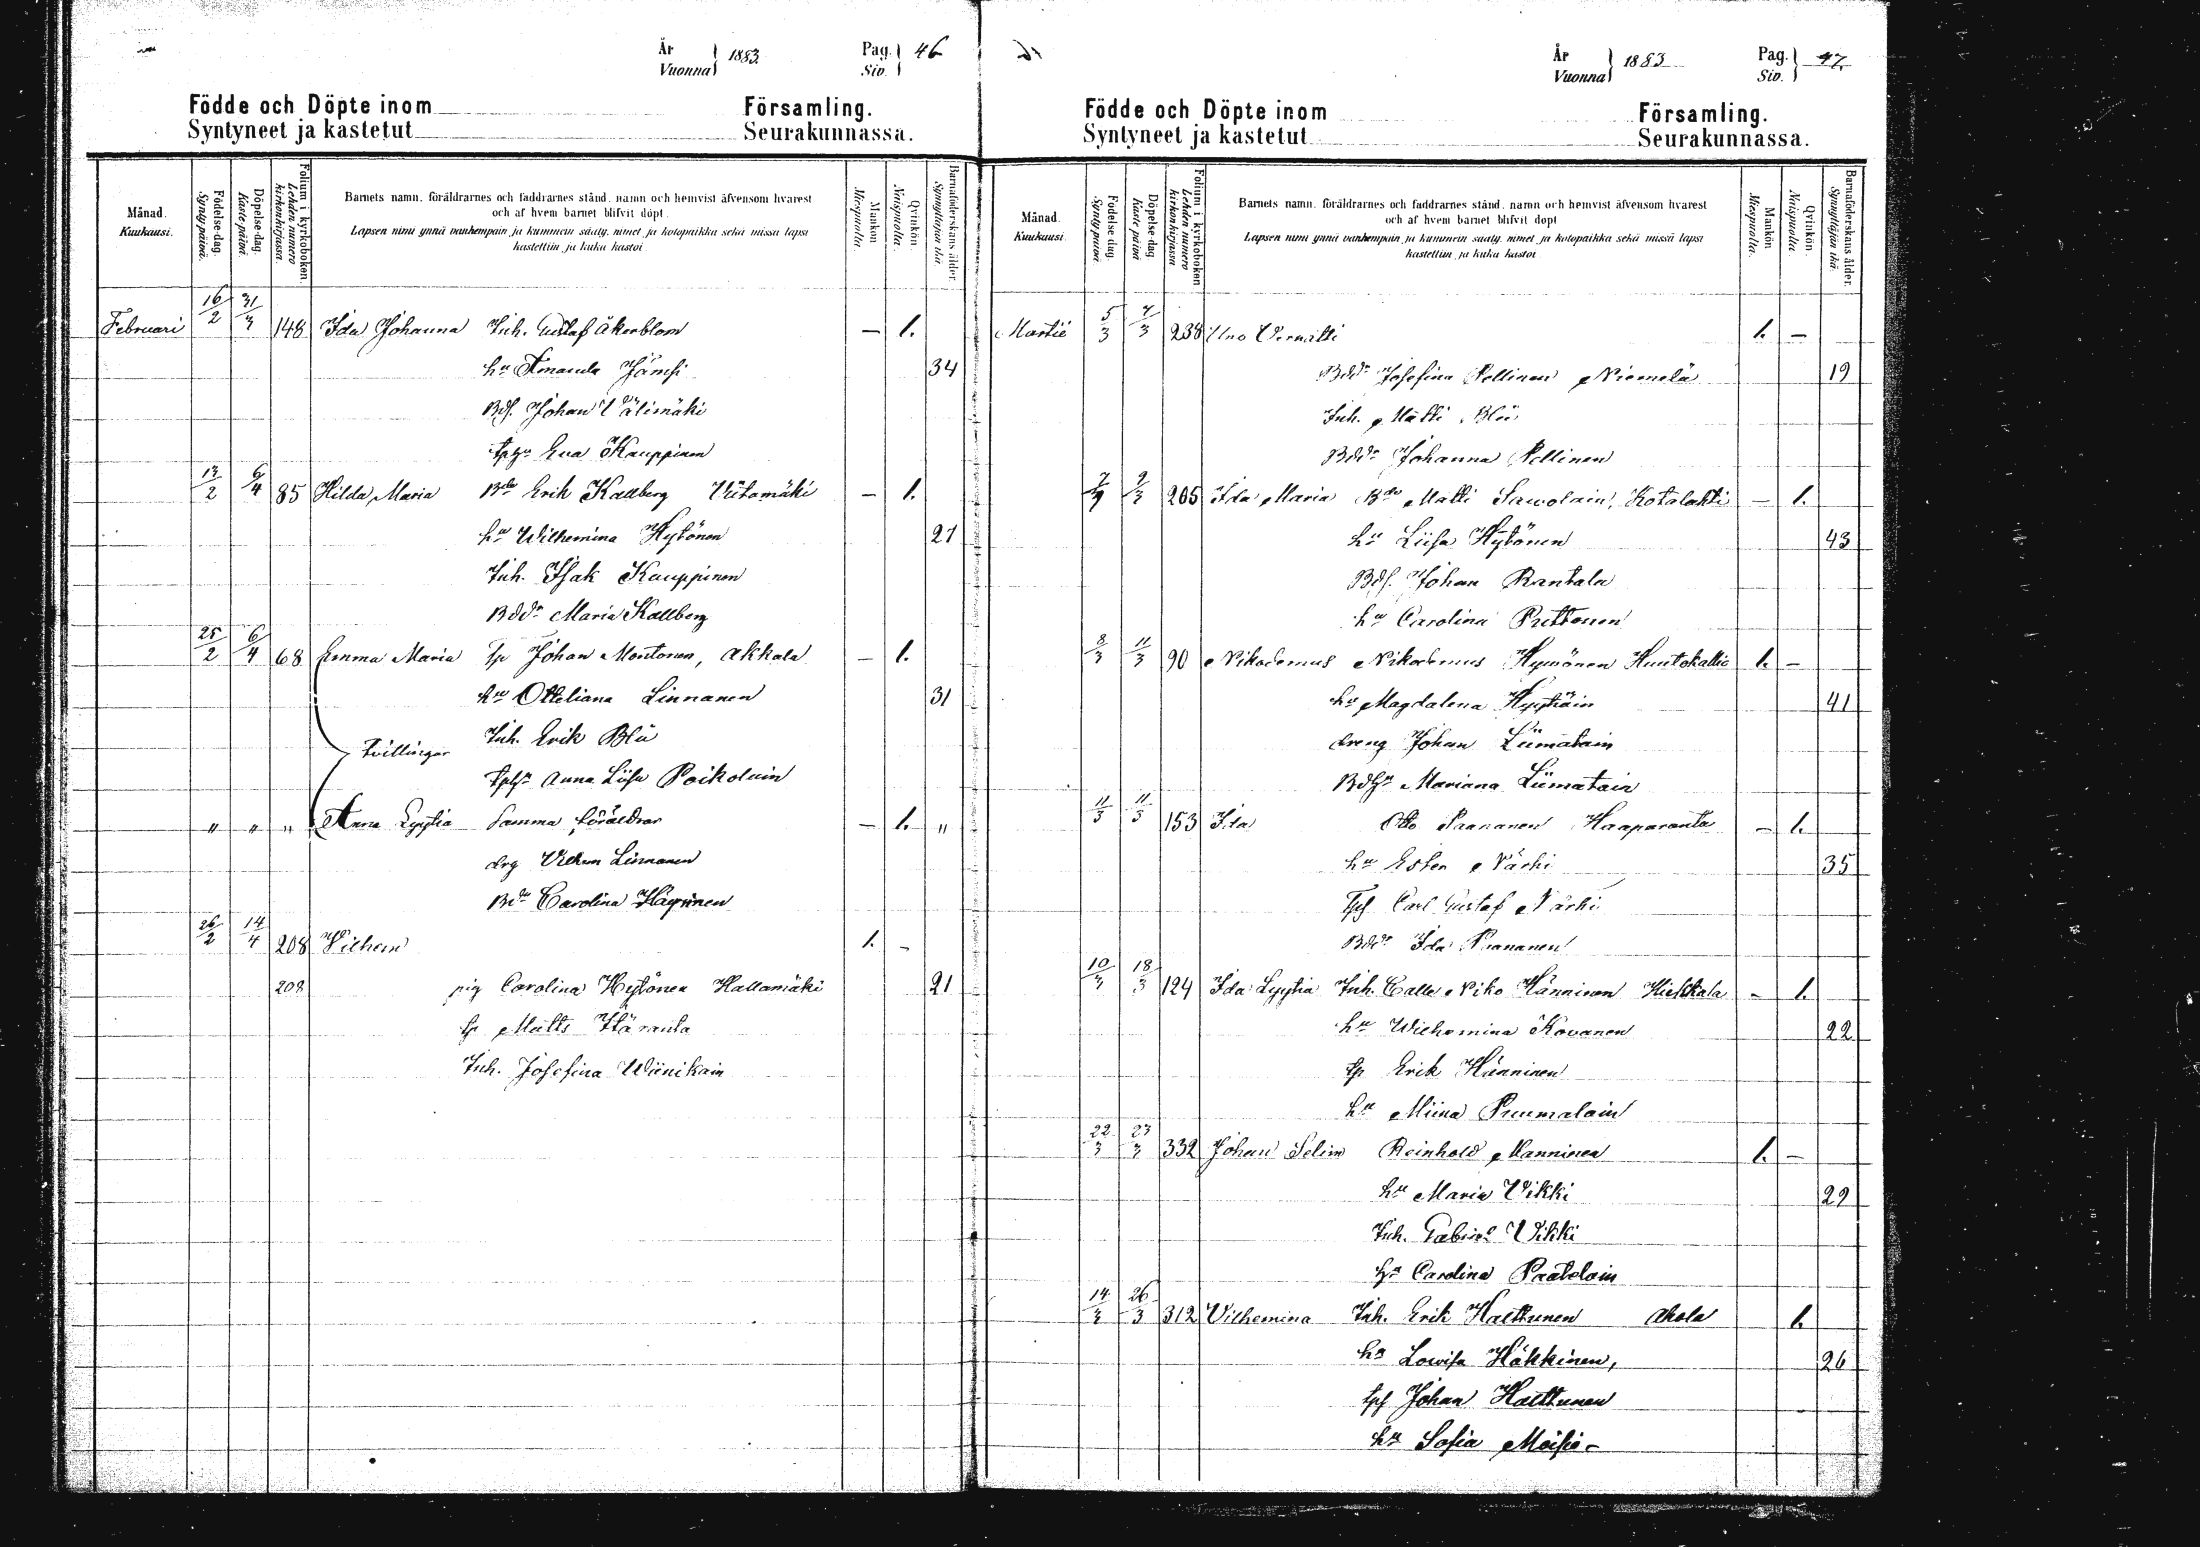 År
Vuonna 1883.
Pag.
Siv. 46
Födde och Döpte inom Församling.
Syntyneet ja kastetut Seurakunnassa.
Månad.
Kuukausi.
Födelse-dag.
Synty päivä.
Döpelse-dag.
Kaste päivä.
Folium i kyrkoboken.
Lehden numero kirkonkirjassa
Barnets namn, föräldrarnes och faddrarnes stånd, namn och hemvist äfvensom hvarest
och af hvem barnet blifvit döpt.
Lapsen nimi ynnä vanhempain ja kummein sääty, nimet ja kotopaikka sekä missä lapsi
kastettiin ja kuka kastoi.
Mankön
Miespuolia.
Qvinkön.
Naispuolia.
Barnaföderskans ålder.
Synnyttäjän ikä.
Februari 16/2 31/3 148 Ida Johanna Inh. Gustaf Åkerblom — 1.
hu Amanda Jämsi 34
Bds. Johan Välimäki
Eva Kauppinen
13/2 6/4 85 Hilda Maria Bde Erik Kallberg Viitamäki — 1.
hu Wilhemina Hytönen 27
Inh. Isak Kauppinen
Bddr Maria Kallberg
25/2 6/4 68 Emma Maria tp Johan Montonen, Akkala — 1.
hu Otteliana Linnanen 31
Inh. Erik Blü
Tvillingar
Anna Liisa Poikolain
" " " Anna Lyytia Samma föräldrar — 1. "
drg Vilhem Linnanen
Carolina Häyrinen
26/2 14/4 208 Vilhem 1. -
208 pig Carolina Hytönen Hallamäki 21
tp Matts Itäranta
Inh. Josefina Wiinikain
År
Vuonna 1883
Pag.
Siv. 47.
Födde och Döpte inom Församling.
Syntyneet ja kastetut Seurakunnassa.
Månad.
Kuukausi.
Födelse dag.
Synty päivä.
Döpelse dag
Kaste päivä
Folium i kyrkoboken
Lehden numero kirkonkirjassa
Barnets namn, föräldrarnes och faddrarnes stånd, namn och hemvist äfvensom hvarest
och af hvem barnet blifvit döpt
Lapsen nimi ynnä vanhempain ja kummein sääty, nimet ja kotopaikka sekä missä lapsi
kastettiin ja kuka kastoi
Mankön
Miespuolia.
Qvinkön.
Naispuolia
Barnaföderskans ålder.
Synnyttäjän ikä.
Martii 5/3 7/3 238 Uno Vernatti 1. —
Bddr Josefina Pellinen Niemelä 19
Inh. Matti Blü
Bddr Johanna Pellinen
7/3 9/3 205 Ida Maria Bde Matti Sawolain, Kotalahti — 1.
hu Liisa Hytönen 43
Bds. Johan Rantala
hu Carolina Puttonen
8/3 11/3 90 Nikodemus Nikodemus Hyvönen Huutokallio 1. —
hu Magdalena Hyytiäin 41
dreng Johan Liimatain
Mariana Liimatain
11/3 11/3 153 Ida Otto Paananen Haaparanta — 1.
hu Ester Närhi 35
Carl Gustaf Närhi
Bddr Ida Paananen
10/3 18/3 124 Ida Lyytia Inh. Calle Niko Hänninen Hiekkala - 1.
hu Wilhemina Kovanen 22
tp Erik Hänninen
hu Miina Puumalain
22/3 23/3 332 Johan Selim Reinhold Manninen 1. —
hu Maria Vikki 29
Inh. Gabriel Vikki
hu Carolina Paatelain
14/3 26/3 312 Vilhemina Inh. Erik Halttunen Ahola 1.
hu Lowisa Häkkinen, 26
Johan Halttunen
hu Sofia Moisio -